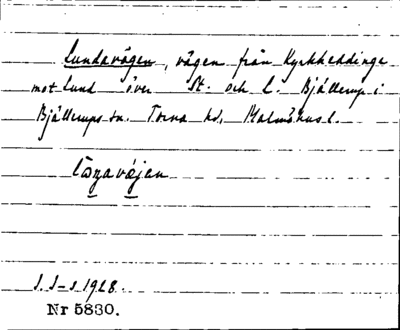 Lundavägen, vägen från Kyrkheddinge
mot Lund över St. och L. Bjällerup i
Bjällerups sn. Torna hd, Malmöhus l.
S. S-s 1928.
Nr 5830.